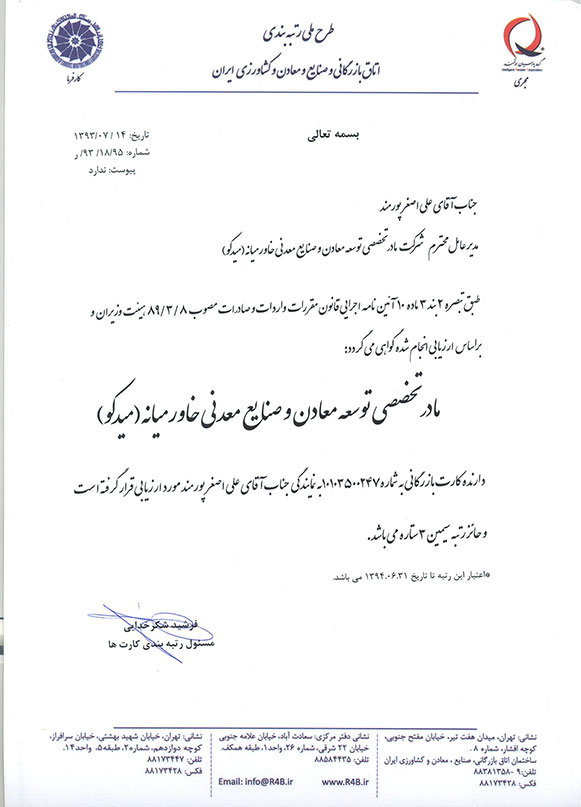 طرح ملی رتبه بندی
اتاق بازرگانی و صنایع و معادن و کشاورزی ایران
کارفرما
مجری
بسمه تعالی
تاریخ: ۱۳۹۳/۰۷/۱۴
شماره: ۹۳/۱۸/۹۵/ر
پیوست: ندارد
جناب آقای علی اصغر پورمند
مدیر عامل محترم شرکت مادر تخصصی توسعه معادن و صنایع معدنی خاور میانه (میدکو)
طبق تبصره ۲ بند ۳ ماده ۱۰ آئین نامه اجرایی قانون مقررات واردات و صادرات مصوب ۸۹/۳/۸ هیئت وزیران و
براساس ارزیابی انجام شده گواهی می گردد:
مادر تخصصی توسعه معادن و صنایع معدنی خاور میانه (میدکو)
دارنده کارت بازرگانی به شماره ۱۰۱۰۳۵۰۰۲۴۷ به نمایندگی جناب آقای علی اصغر پورمند مورد ارزیابی قرار گرفته است
و حائز رتبه سیمین ۳ ستاره می باشد.
*اعتبار این رتبه تا تاریخ ۱۳۹۴.۰۶.۳۱ می باشد.
فرشید شکرخدایی
مسئول رتبه بندی کارت ها
نشانی: تهران، میدان هفت تیر، خیابان مفتح جنوبی،
کوچه افشار، شماره ۸ .
ساختمان اتاق بازرگانی، صنایع ، معادن و کشاورزی ایران
تلفن: ۹-۸۸۳۸۱۳۵۸
فکس: ۸۸۱۷۳۴۲۸
نشانی دفتر مرکزی: سعادت آباد، خیابان علامه جنوبی
خیابان ۲۲ شرقی، شماره ۲۶، واحد۱، طبقه همکف.
تلفن: ۸۸۵۸۴۴۳۵
Email: info@R4B.ir www.R4B.ir
نشانی: تهران، خیابان شهید بهشتی، خیابان سرافراز،
کوچه دوازدهم، شماره۲، طبقه۵، واحد۱۴.
تلفن: ۸۸۱۷۳۴۴۷
فکس: ۸۸۱۷۳۴۲۸